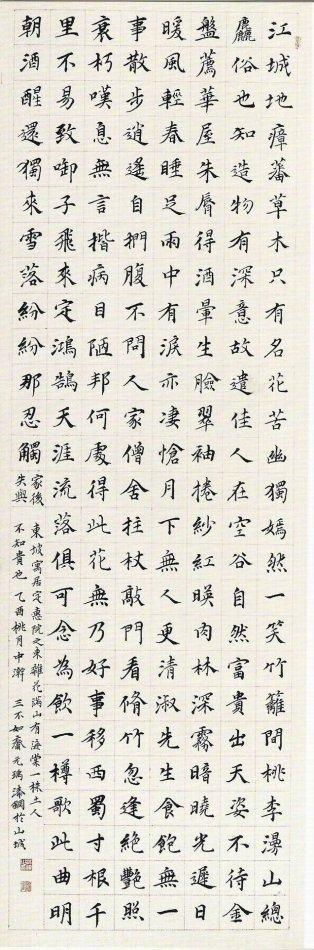 江城地瘴蕃草木只有名花苦幽獨嫣然一笑竹籬間桃李漫山總
麤俗也知造物有深意故遣佳人在空谷自然富貴出天姿不待金
盤薦華屋朱脣得酒暈生臉翠袖捲紗紅映肉林深霧暗曉光遲日
暖風輕春睡足雨中有淚亦凄愴月下無人更清淑先生食飽無一
事散步逍遙自捫腹不問人家僧舍拄杖敲門看脩竹忽逢絕艷照
衰朽嘆息無言揩病目陋邦何處得此花無乃好事移西蜀寸根千
里不易致啣子飛來定鴻鵠天涯流落俱可念為飲一樽歌此曲明
朝酒醒還獨來雪落紛紛那忍觸
家後
失與
東坡寓居定惠院之東雜花滿山有海棠一株土人
不知貴也 乙酉桃月中澣 三不如齋元瑞漆鋼於山城